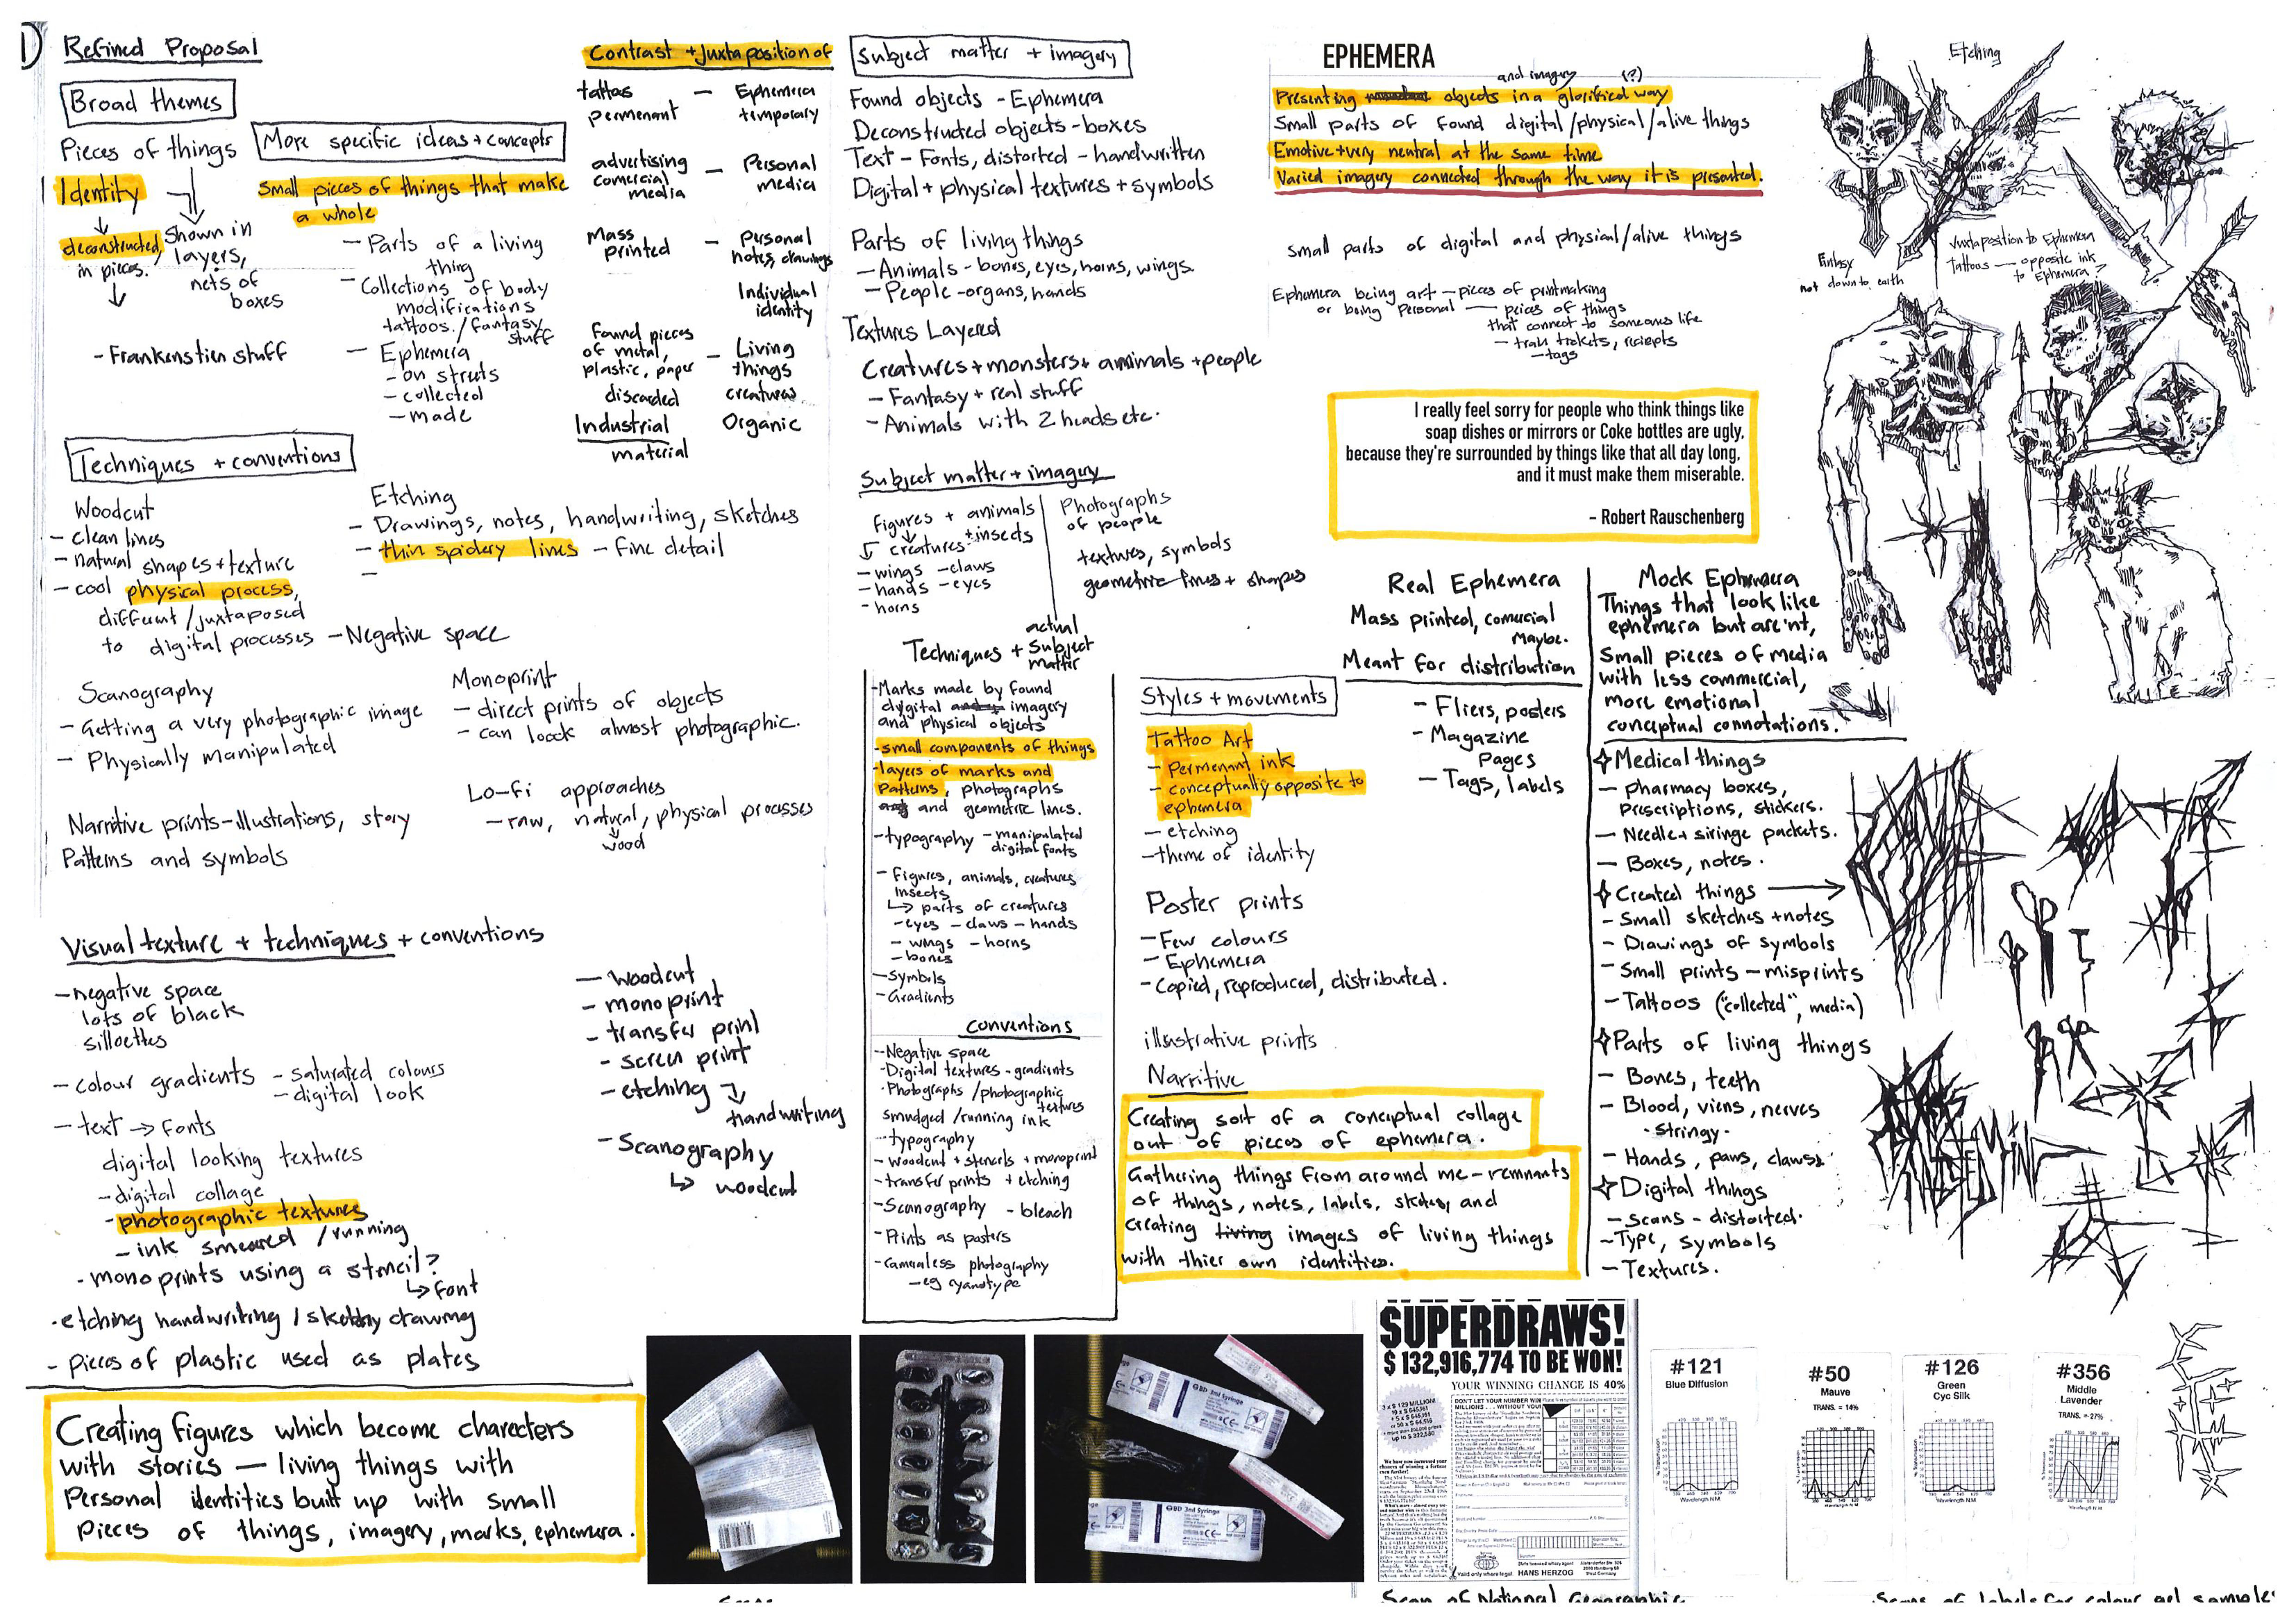 1)
Refined Proposal
Broad themes
Pieces of things
Identity
deconstructed,
in pieces.
Shown in
layers,
nets of
boxes
- Frankenstien stuff
More specific ideas + concepts
Small pieces of things that make
a whole
- Parts of a living
thing
- Collections of body
modifications
tattoos. / fantasy
stuff
- Ephemera
- on struts
- collected
- made
Contrast + juxtaposition of
tattoos — Ephemera
permenant temporary
advertising — Personal
comercial media
media
Mass — Personal
printed notes, drawings
Individual
identity
Found pieces
of metal, — Living
plastic, paper things
discarded creatures
Industrial Organic
material
Techniques + conventions
Woodcut
- clean lines
- natural shapes + texture
- cool physical process,
different / juxtaposed
to digital processes - Negative space
Etching
- Drawings, notes, handwriting, sketches
- thin spidery lines - fine detail
-
Scanography
- Getting a very photographic image
- Physically manipulated
Monoprint
- direct prints of objects
- can loock almost photographic.
Narritive prints - illustrations, story
Patterns and symbols
Lo-fi approaches
- raw, natural, physical processes
wood
Visual texture + techniques + conventions
- negative space
lots of black
silloettes
- colour gradients - saturated colours
- digital look
- text → fonts
digital looking textures
- digital collage
- photographic textures
- ink smeared / running
- monoprints using a stencil?
↳ font
- etching handwriting / sketchy drawing
- pieces of plastic used as plates
- woodcut
- monoprint
- transfer print
- screen print
- etching
handwriting
- Scanography
↳ woodcut
Creating figures which become charecters
with stories — living things with
Personal identities built up with small
pieces of things, imagery, marks, ephemera.
Subject matter + imagery
Found objects - Ephemera
Deconstructed objects - boxes
Text - Fonts, distorted - handwritten
Digital + physical textures + symbols
Parts of living things
- Animals - bones, eyes, horns, wings.
- People - organs, hands
Textures Layered
Creatures + monsters + animals + people
- Fantasy + real stuff
- Animals with 2 heads etc.
Subject matter + imagery
figures + animals
↳ creatures + insects
- wings - claws
- hands - eyes
- horns
Photographs
of people
textures, symbols
geometric lines + shapes
Techniques + actual Subject
matter
- Marks made by found
dygital imagery
and physical objects
- small components of things
- layers of marks and
patterns, photographs
and geometric lines.
- typography - manipulated
digital fonts
- figures, animals, creatures
insects
↳ parts of creatures
- eyes - claws - hands
- wings - horns
- bones
- Symbols
- Gradients
conventions
- Negative space
- Digital textures - gradients
- Photographs / photographic
textures
smudged / running ink
- typography
- woodcut + stencils + monoprint
- transfer prints + etching
- Scanography - bleach
- Prints as posters
- cameraless photography
- eg cyanotype
EPHEMERA
and imagery (?)
Presenting objects in a glorified way
Small parts of found digital / physical / alive things
Emotive + very neutral at the same time
Varied imagery connected through the way it is presented.
small parts of digital and physical / alive things
Ephemera being art - pieces of printmaking
or being Personal — peices of things
that connect to someones life
- train tickets, reciepts
- tags
I really feel sorry for people who think things like
soap dishes or mirrors or Coke bottles are ugly,
because they're surrounded by things like that all day long,
and it must make them miserable.
- Robert Rauschenberg
Styles + movements
Tattoo Art
- Permenant ink
- conceptually opposite to
ephemera
- etching
- theme of identity
Poster prints
- Few colours
- Ephemera
- Copied, reproduced, distributed.
illustrative prints
Narritive
Creating sort of a conceptual collage
out of pieces of ephemera.
Gathering things from around me - remnants
of things, notes, labels, sketches, and
creating living images of living things
with thier own identities.
Real Ephemera
Mass printed, comercial
Maybe.
Meant for distribution
- Fliers, posters
- Magazine
Pages
- Tags, labels
Mock Ephemera
Things that look like
ephemera but are'nt,
Small pieces of media
with less commercial,
more emotional
conceptual connotations.
Medical things
- Pharmacy boxes,
Prescriptions, stickers.
- Needle + siringe packets.
- Boxes, notes.
Created things
- Small sketches + notes
- Drawings of symbols
- Small prints - misprints
- Tattoos ("collected", media)
Parts of living things
- Bones, teeth
- Blood, viens, nerves
- Stringy -
- Hands, paws, claws
Digital things
- Scans - distorted.
- Type, symbols
- Textures.
Etching
Fantasy
not down to earth
Juxtaposition to Ephemera
Tattoos — opposite ink
to Ephemera?
BD 3ml Syringe
BD 3ml Syringe
SUPERDRAWS!
$ 132,916,774 TO BE WON!
YOUR WINNING CHANCE IS 40%
Valid only where legal. HANS HERZOG
#121
Blue Diffusion
Wavelength N.M.
#50
Mauve
TRANS. = 14%
Wavelength N.M.
#126
Green
Cyc Silk
Wavelength N.M.
#356
Middle
Lavender
TRANS. = 27%
Wavelength N.M.
Scan of National Geographic
Scans of labels for colour gel samples